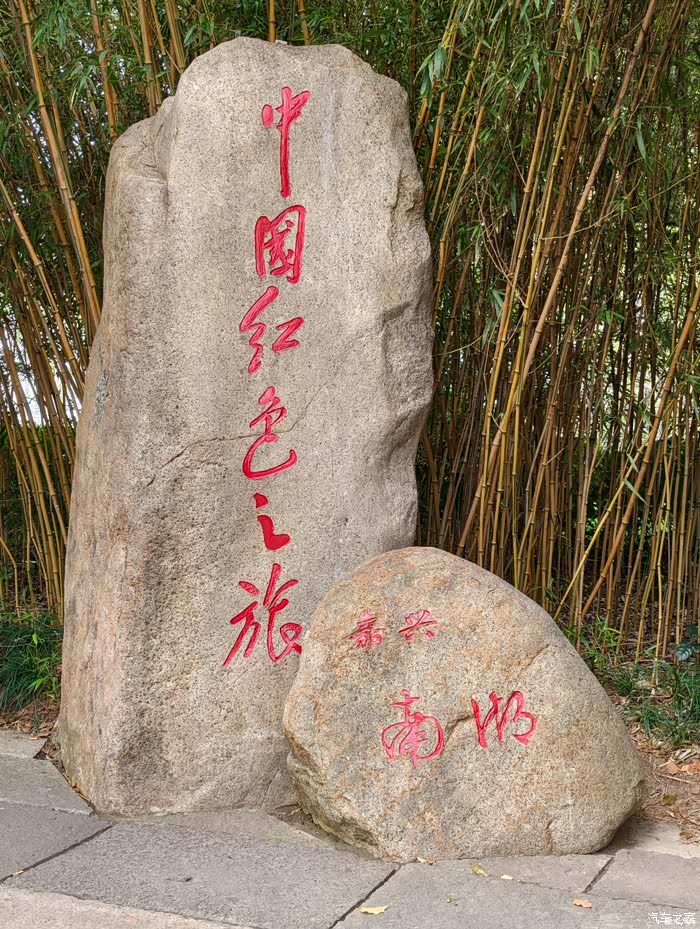 中国红色之旅
嘉兴
南湖
汽车之家